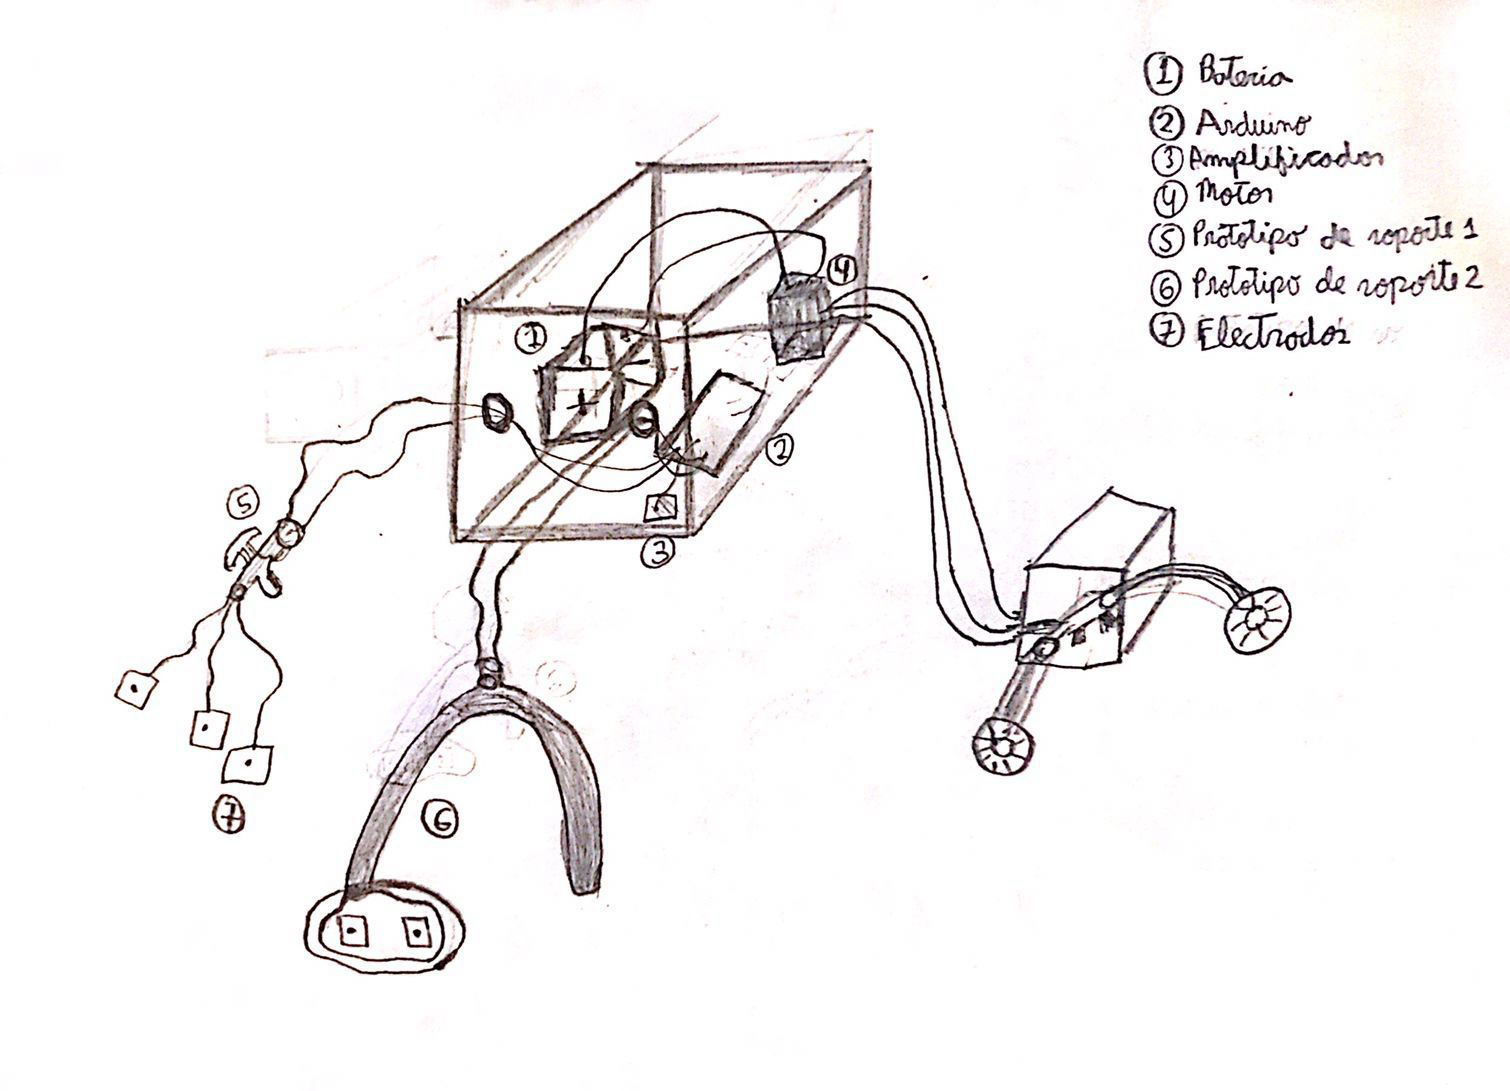 ① Bateria
② Arduino
③ Amplificador
④ Motor
⑤ Prototipo de soporte 1
⑥ Prototipo de soporte 2
⑦ Electrodos
①
④
②
⑤
③
⑥
⑦